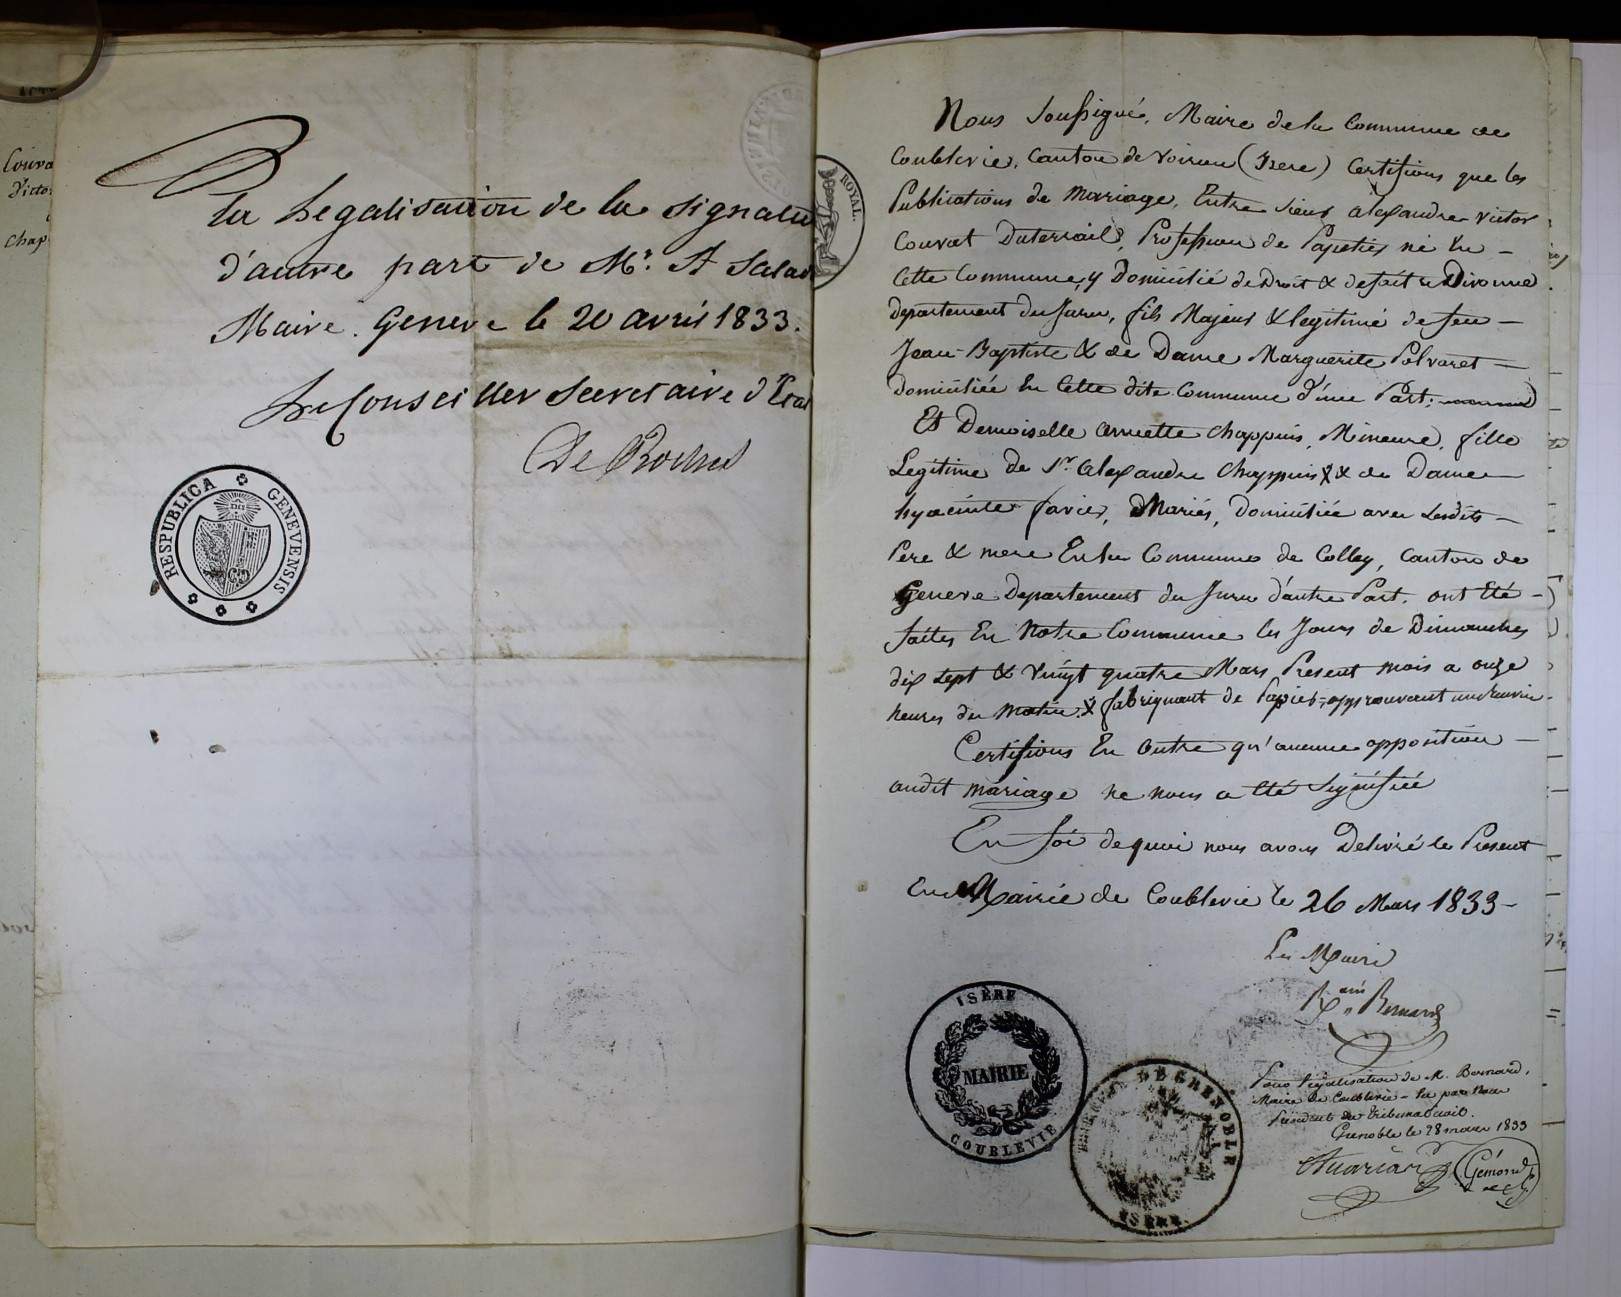 Couva
Victo
Chap
Pr la Legalisation de la Signatu
d'autre part de Mr. A Salad
Maire. Geneve le 20 avril 1833.
Le Conseiller Secretaire d'Etat
De Roches
RESPUBLICA GENEVENSIS
ROYAL.
Nous Soussigné, Maire de la Commune de
Coublevie, Canton de Voiron (Isere) Certifions que les
Publications de Mariage, Entre Sieur alexandre victor
Couvat Duterrail, Profession de Papetier né En
Cette Commune, y Domicilié de Droit & de fait a Divonne
departement du Jura, fils Majeur & legitime de feu
Jean-Baptiste & de Dame Marguerite Polvaret
domiciliée En Cette dite Commune d'une Part;
Et Demoiselle annette Chappuis, Mineure, fille
Legitime de Sr. Alexandre Chappuis X & de Dame
hyacinte favier, Mariés, Domiciliée avec Lesdits
Pere & mere En la Commune de Colley, Canton de
Geneve Departement du Jura d'autre Part. ont Eté
faites En Notre Commune les Jours de Dimanches
dix sept & Vingt quatre Mars Present mois a onze
heures du Matin. X fabriquant de Papier, approuvant
Certifions En Outre qu'aucune opposition
audit mariage ne nous a Eté Signifiée
En foi de quoi nous avons Delivré le Present
En Mairie de Coublevie le 26 Mars 1833
Le Maire
Bernard
ISÈRE
MAIRIE
COUBLEVIE
DE GRENOBLE
ISÈRE
Pour legalisation de M. Bernard,
Maire de Coublevie par Nous
President du Tribunal Civil.
Grenoble le 28 mars 1833